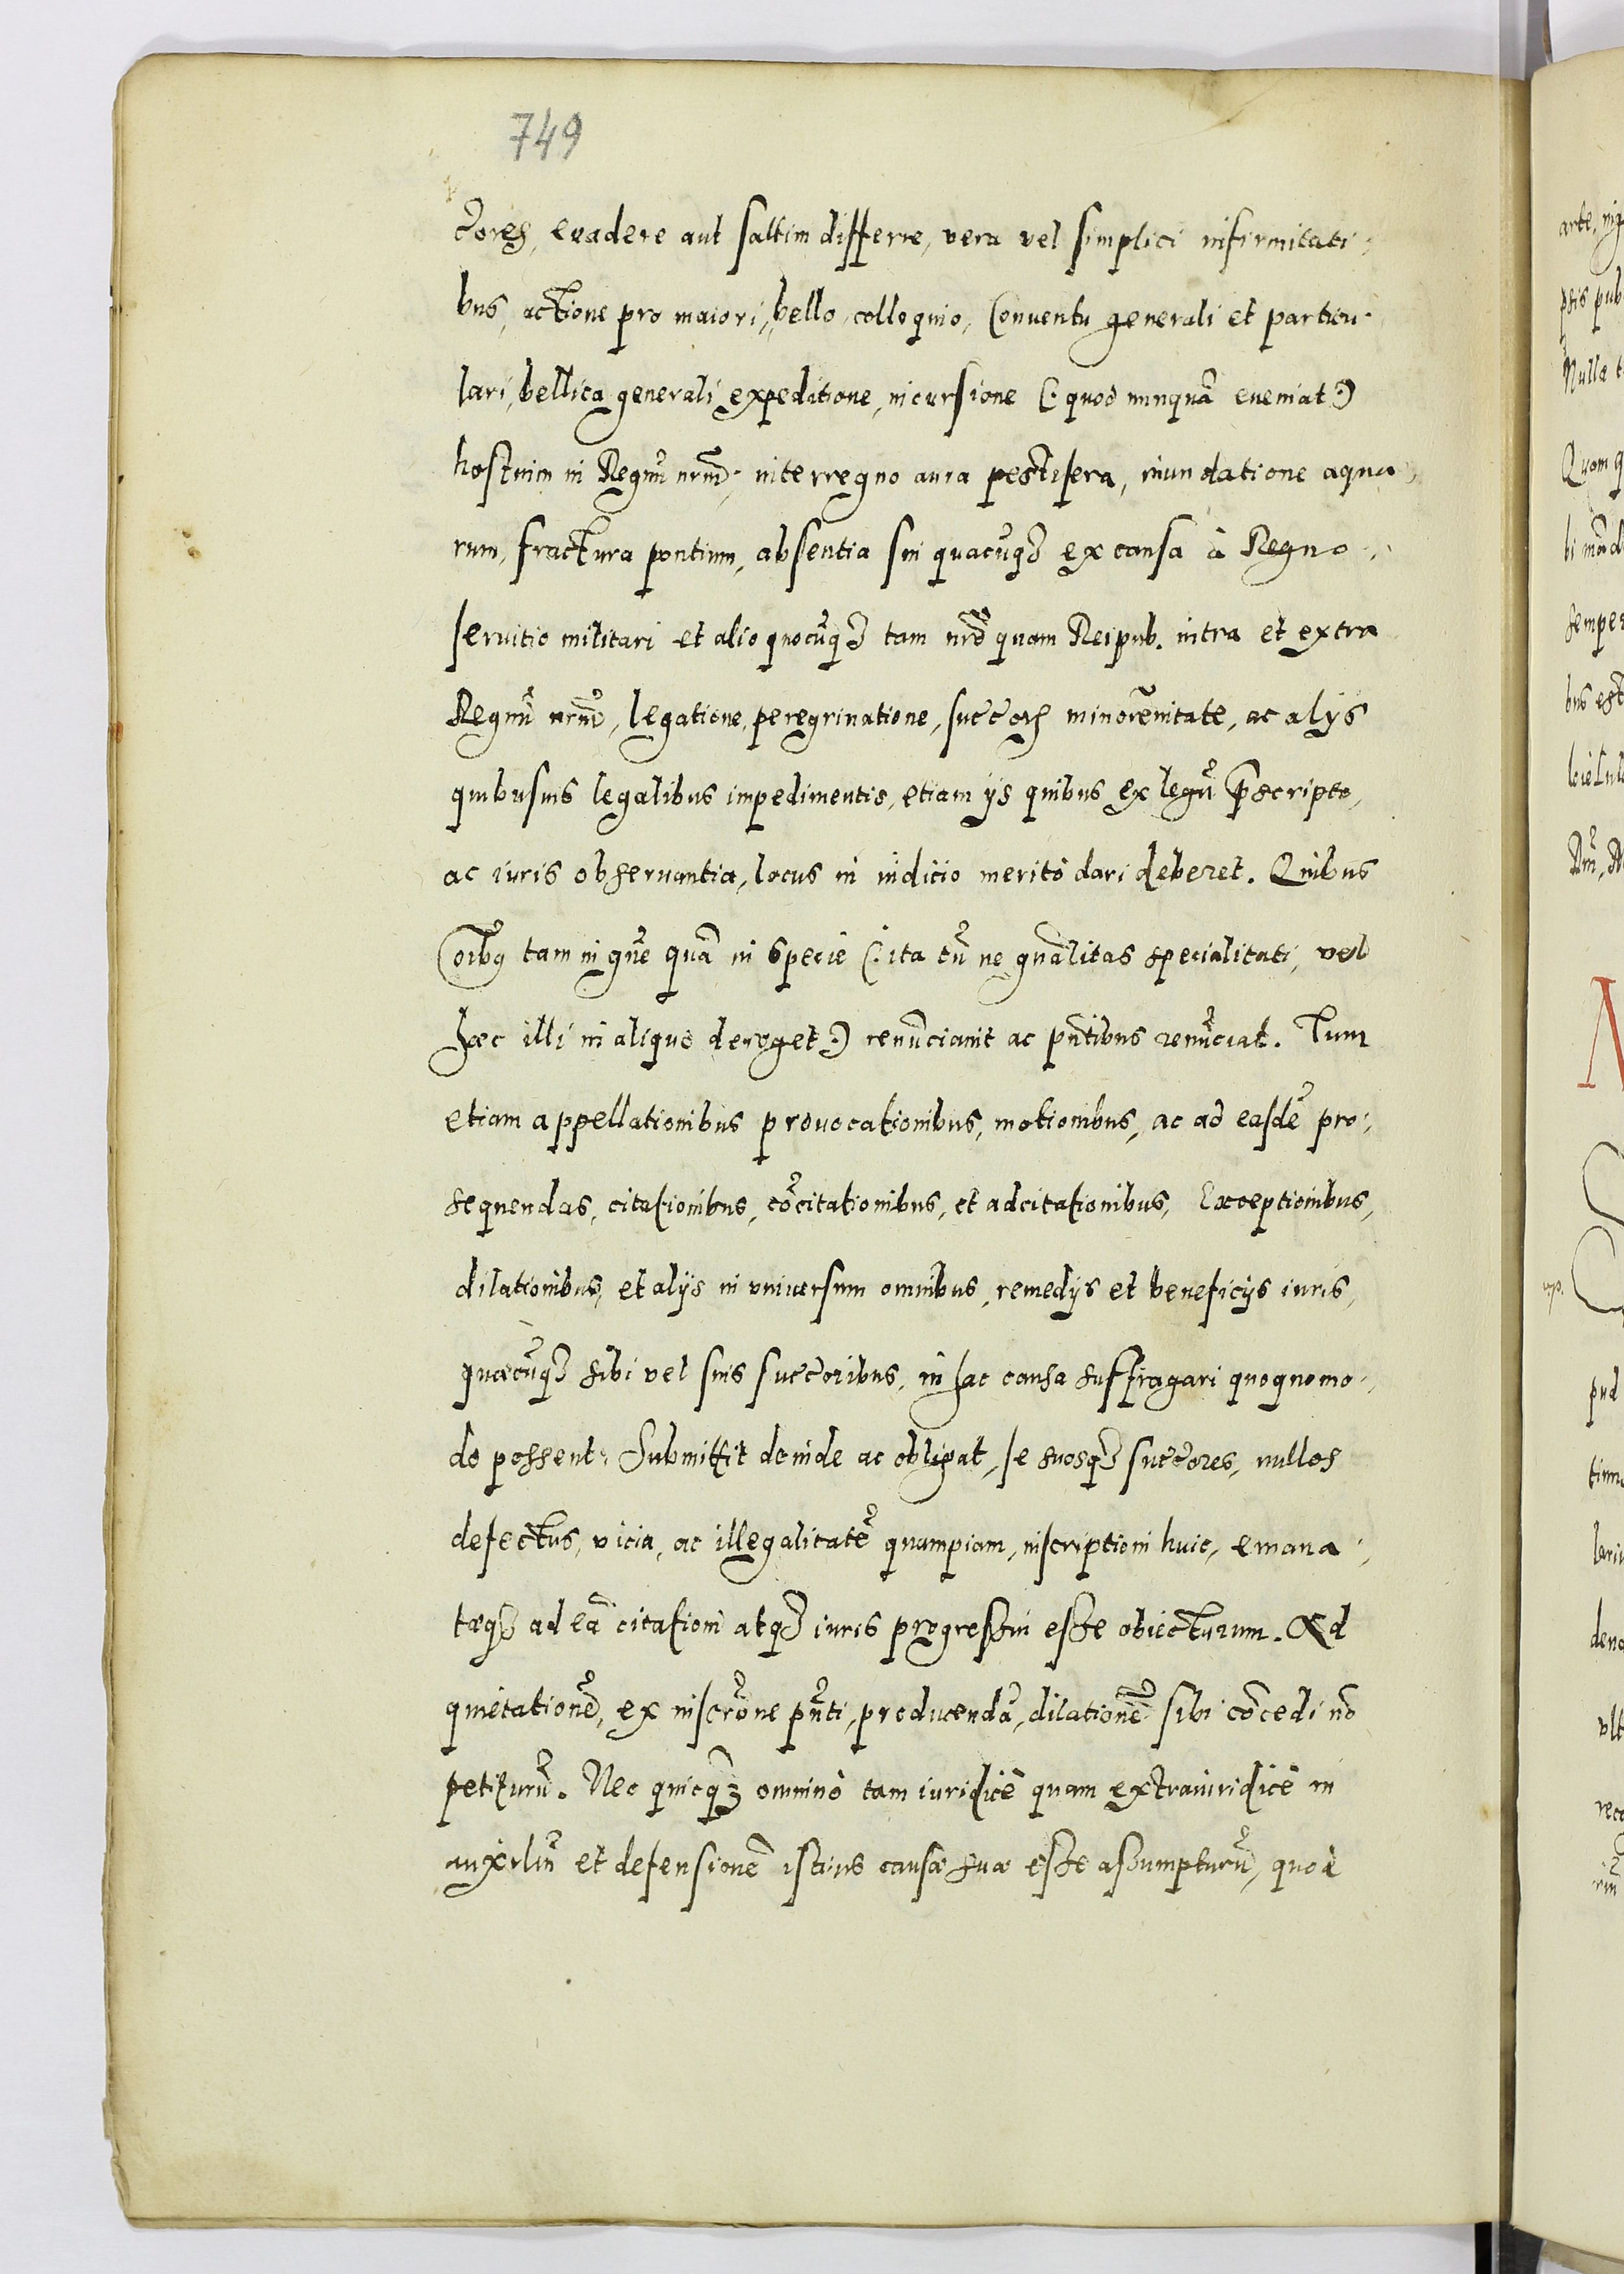 749
ctores, euadere aut saltim differre, vera vel simplici infirmitati,
bus, actione pro maiori, bello, colloquio, Conuentu generali et particu
lari, bellica generali expeditione, incursione (: quod nunquã eueniat :)
hostium in Regnũ nrũ, interregno aura pestifera, inundatione aqua,
rum, fractura pontium, absentia sui quacũq3 ex causa à Regno,
seruitio militari et alio quocũq3 tam nrõ quam Reipub. intra et extra
Regnũ nrũ, legatione, peregrinatione, succors minorẽnitate, ac alijs
quibusuis legalibus impedimentis, etiam ijs quibus ex legũ p̃scripto,
ac iuris obseruantia, locus in iudicio meritò dari deberet. Quibus
oĩbs tam in gñe quã in specie (: ita tñ ne gñalitas specialitati, vel
hæc illi in aliquo deroget :) renũciauit ac pñtibus renũciat. Tum
etiam appellationibus prouocationibus, motionibus, ac ad easdẽ pro,
sequendas, citationibus, cõcitationibus, et adcitationibus, Exceptionibus,
dilationibus, et alijs in vniuersum omnibus, remedijs et beneficijs iuris,
quæcũq3 sibi vel suis succtoribus, in hac causa suffragari quoquomo,
do possent. Submittit deinde ac obligat, se suosq3 succtores, nullos
defectus, vicia, ac illegalitatẽ quampiam, inscriptioni huic, emana,
tæq3 ad eã citationi atq3 iuris progressui esse obiecturum. Ad
quietationẽ, ex inscrõne pñti, producendã, dilationẽ sibi cõcedi nõ
petiturũ. Nec quicq3 omninò tam iuridicè quam extraiuridicè in
auxiliũ et defensionẽ istius causæ suæ esse assumpturũ, quo è
arte,
ptis pub
Nullæ
Quom q
semper
bus est
N
pud